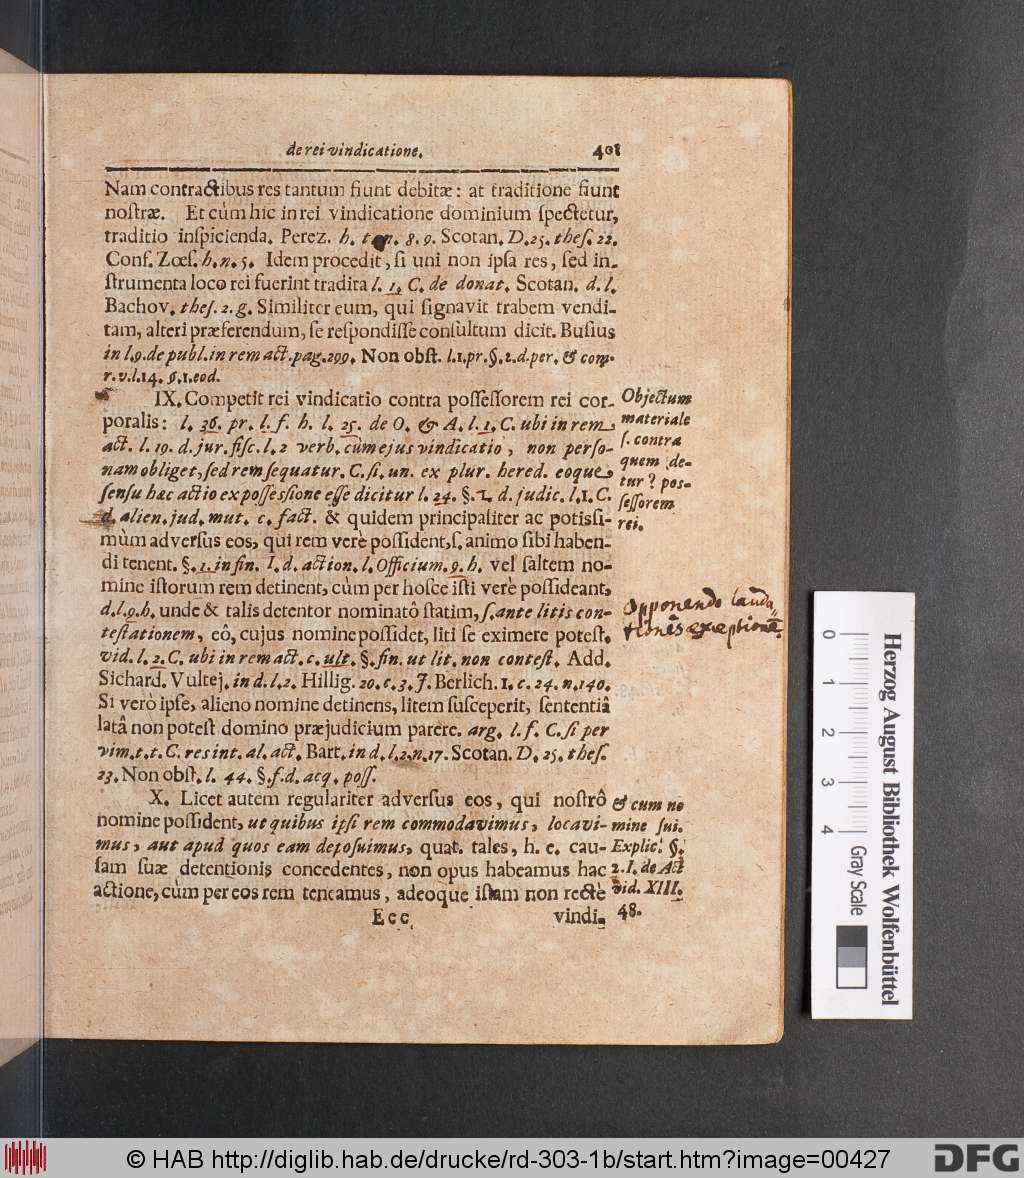 de rei vindicatione. 401
Nam contractibus res tantum fiunt debitæ: at traditione fiunt
nostræ. Et cùm hic in rei vindicatione dominium spectetur,
traditio inspicienda. Perez. h. t. n. 8. 9. Scotan. D. 25. thes. 22.
Conf. Zœs. h. n. 5. Idem procedit, si uni non ipsa res, sed in-
strumenta loco rei fuerint tradita l. 1. C. de donat. Scotan. d. l.
Bachov. thes. 2. g. Similiter eum, qui signavit trabem vendi-
tam, alteri præferendum, se respondisse consultum dicit. Busius
in l. 9. de publ. in rem act. pag. 299. Non obst. l. 1. pr. §. 2. d. per. & com.
r. v. l. 14. §. 1. eod.
IX. Competit rei vindicatio contra possessorem rei cor-
poralis: l. 36. pr. l. f. h. l. 25. de O. & A. l. 1. C. ubi in rem
act. l. 19. d. jur. fisc. l. 2 verb. cùm ejus vindicatio, non perso-
nam obliget, sed rem sequatur. C. si. un. ex plur. hered. eoque
sensu hæc actio ex possessione esse dicitur l. 24. §. 2. d. judic. l. 1. C.
d. alien. jud. mut. c. fact. & quidem principaliter ac potissi-
mùm adversus eos, qui rem verè possident, s. animo sibi haben-
di tenent. §. 1. in fin. I. d. action. l. Officium. 9. h. vel saltem no-
mine istorum rem detinent, cùm per hosce isti verè possideant,
d. l. 9. h. unde & talis detentor nominatô statim, s. ante litis con-
testationem, eô, cujus nomine possidet, liti se eximere potest.
vid. l. 2. C. ubi in rem act. c. ult. §. fin. ut lit. non contest. Add.
Sichard. Vultej. in d. l. 2. Hillig. 20. c. 3. J. Berlich. 1. c. 24. n. 140.
Si verò ipse, alieno nomine detinens, litem susceperit, sententiâ
latâ non potest domino præjudicium parere. arg. l. f. C. si per
vim. t. t. C. res int. al. act. Bart. in d. l. 2. n. 17. Scotan. D. 25. thes.
23. Non obst. l. 44. §. f. d. acq. poss.
X. Licet autem regulariter adversus eos, qui nostrô
nomine possident, ut quibus ipsi rem commodavimus, locavi-
mus, aut apud quos eam deposuimus, quat. tales, h. e. cau-
sam suæ detentionis concedentes, non opus habeamus hac
actione, cùm per eos rem teneamus, adeoque istam non rectè
Eee vindi-
Objectum
materiale
s. contra
quem de-
tur? pos-
sessorem
rei.
Opponendo lauda
tionis exceptionē.
& cum no
mine sui.
Explic. §.
2. I. de Act
vid. XIII.
48.
0 1 2 3 4
Gray Scale
Herzog August Bibliothek Wolfenbüttel
© HAB http://diglib.hab.de/drucke/rd-303-1b/start.htm?image=00427
DFG